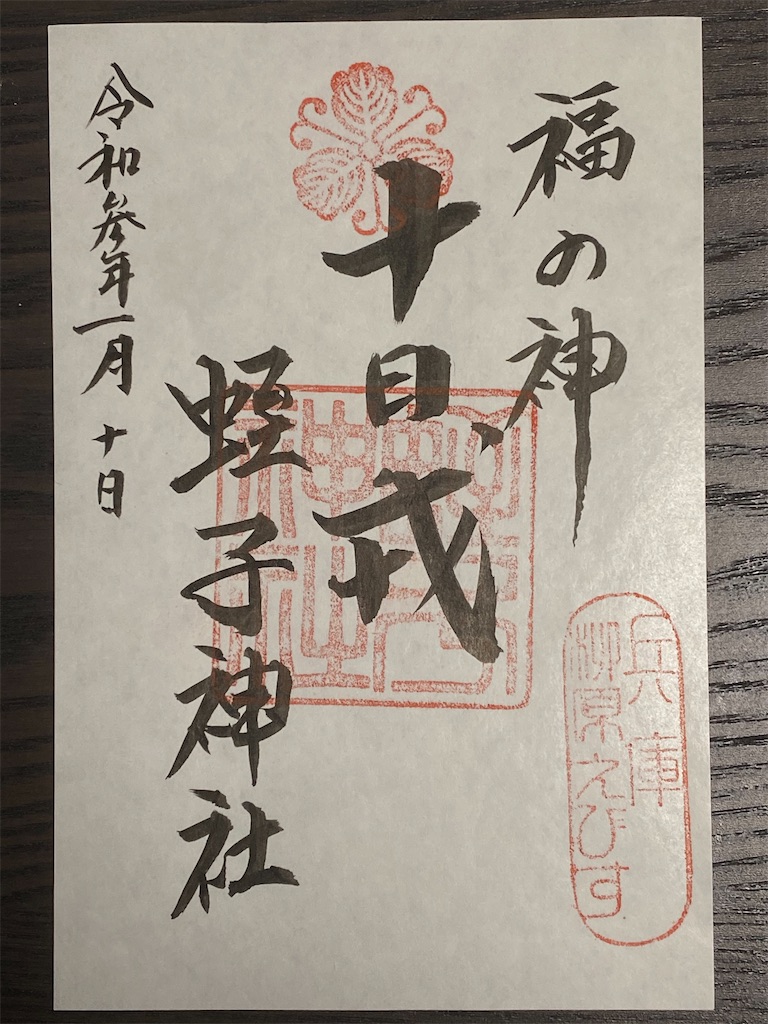 福の神
十日戎
蛭子神社
令和参年一月十日
兵庫
柳原えびす
蛭子神社